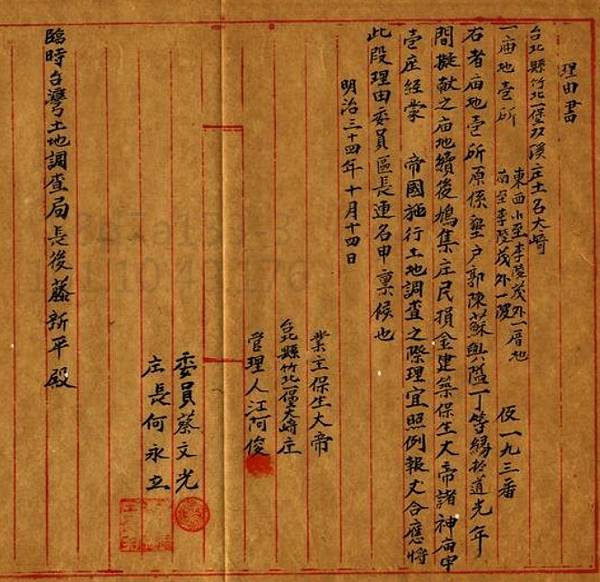 理由書
台北縣竹北一堡双溪庄土名大崎
一庙地壹所 東西北至李陵茂外一厝地 南至李陵茂外一 仮一九三番
右者庙地壹所原係墾户郭陳蘇興隘丁等緣於道光年
間擬献之庙地續後鳩集庄民損金建築保生大帝諸神庙宇
壹座經蒙 帝國施行土地調查之際理宜照例報丈合應將
此段理由委員區長連名申稟候也
明治三十四年十月十四日
業主保生大帝
台北縣竹北一堡大崎庄
管理人江阿俊
委員蔡文光
庄長何永立
臨時台灣土地調查局長後藤新平殿